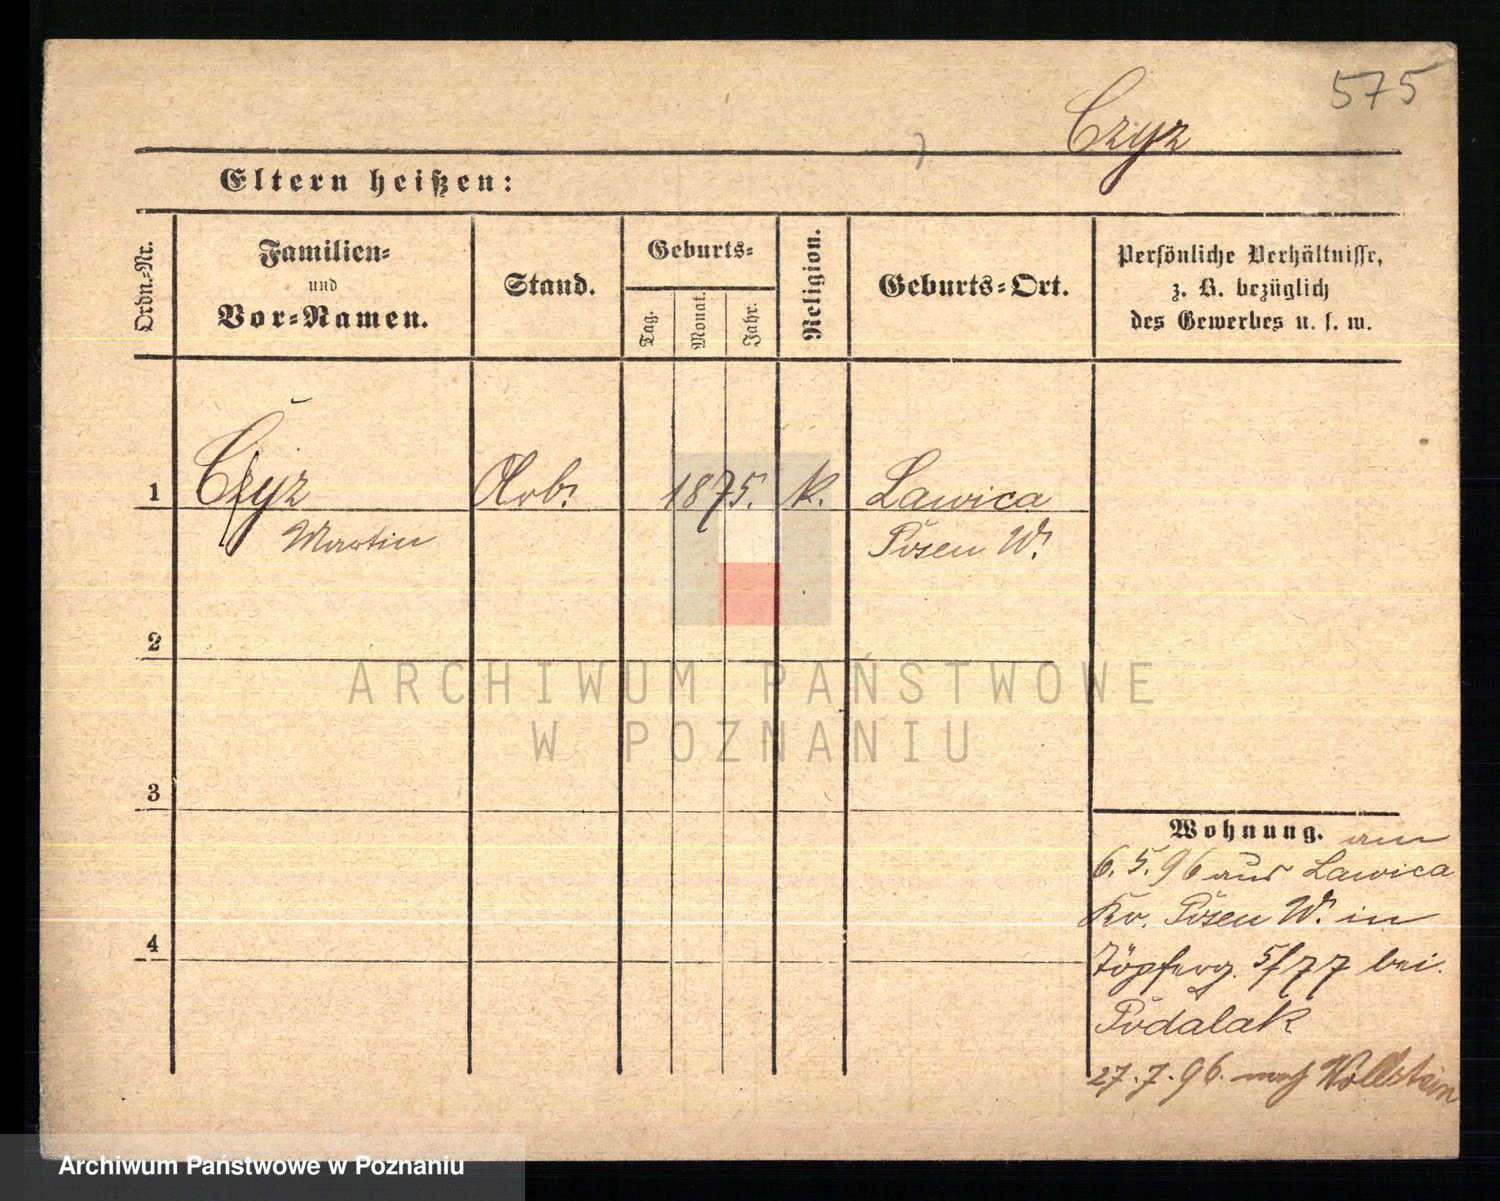 575
Czyz
Eltern heißen:
Ordn.-Nr.
Familien-
und
Vor-Namen.
Stand.
Geburts-
Tag.
Monat.
Jahr.
Religion.
Geburts-Ort.
Persönliche Verhältnisse,
z. B. bezüglich
des Gewerbes u. s. w.
1 Czyz Arb. 1875. k. Lawica
Martin Posen W.
2
ARCHIWUM PAŃSTWOWE
W POZNANIU
3
Wohnung. am
6.5.96 aus Lawica
Kr. Posen W. in
4
Töpferg. 5/77 bei
Podalak
27.7.96. nach Wollstein
Archiwum Państwowe w Poznaniu